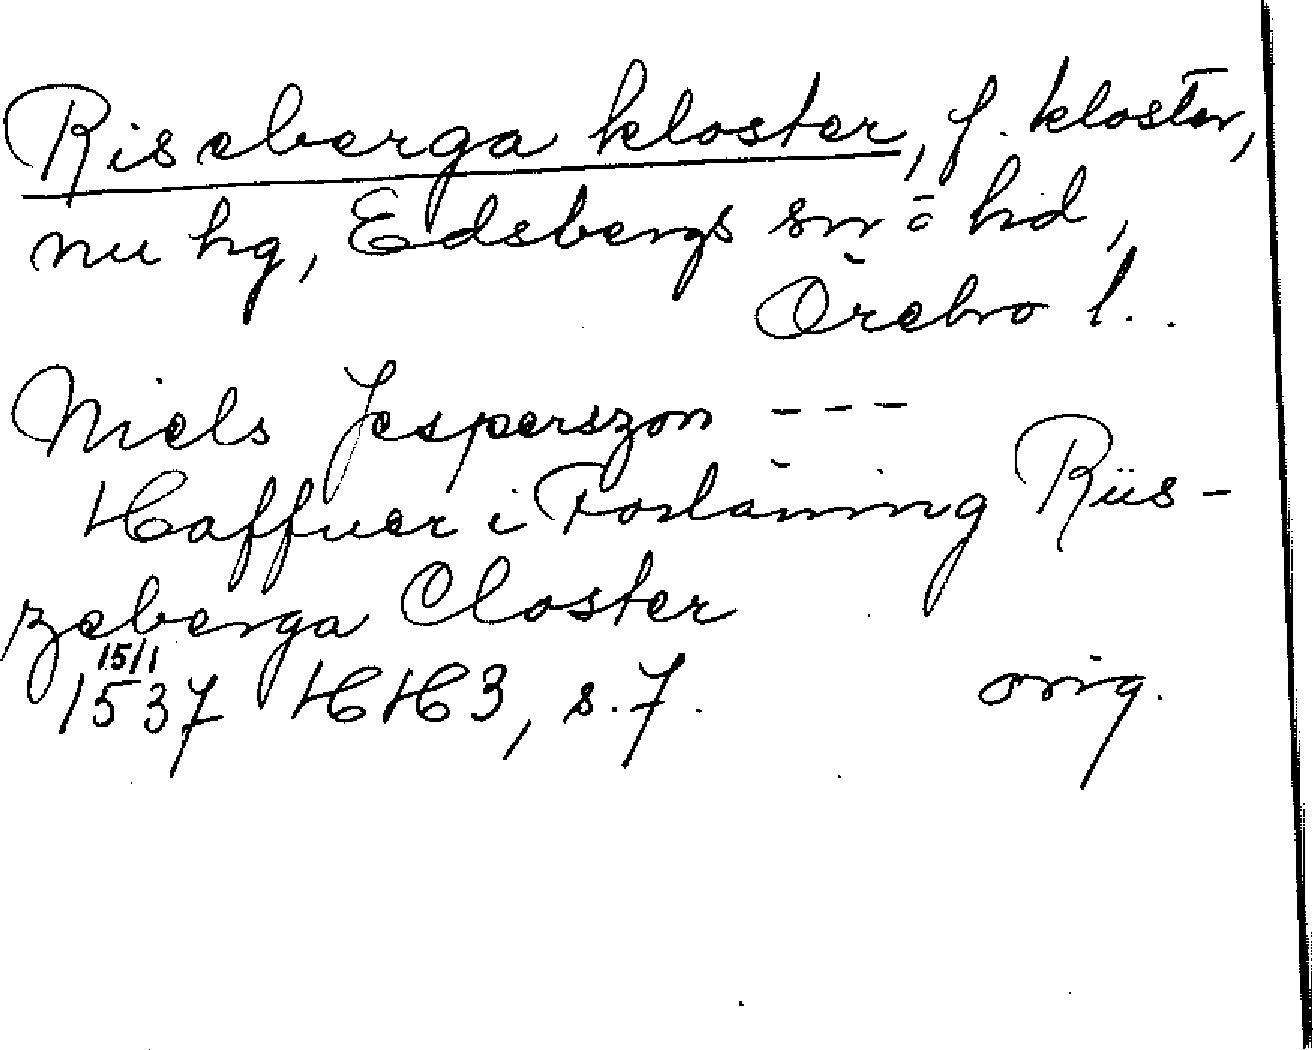 Riseberga kloster, f. kloster,
nu hg, Edsbergs sn o hd,
Örebro l..
Niels Jesperszon ---
Haffuer i Forläning Rüs-
zeberga Closter
15/1
1537 HH3, s. 7. orig.